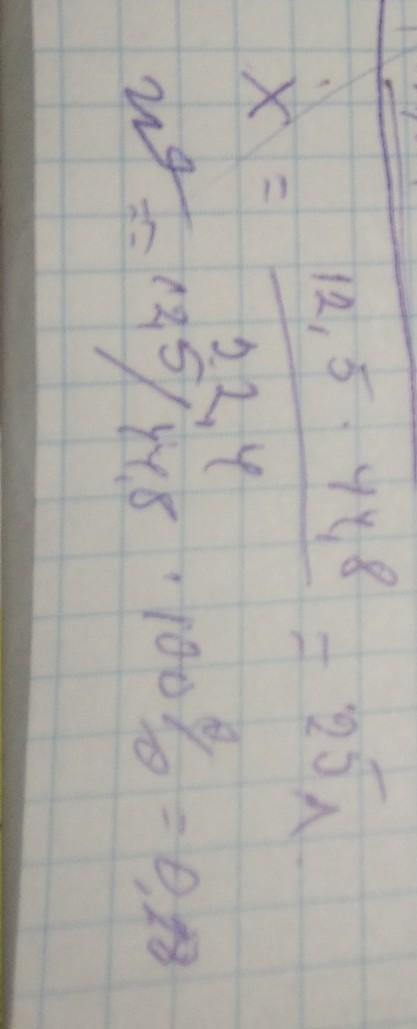 x = 12,5 · 44,8 / 22,4 = 25 л
= 12,5/44,8 · 100% = 0,28